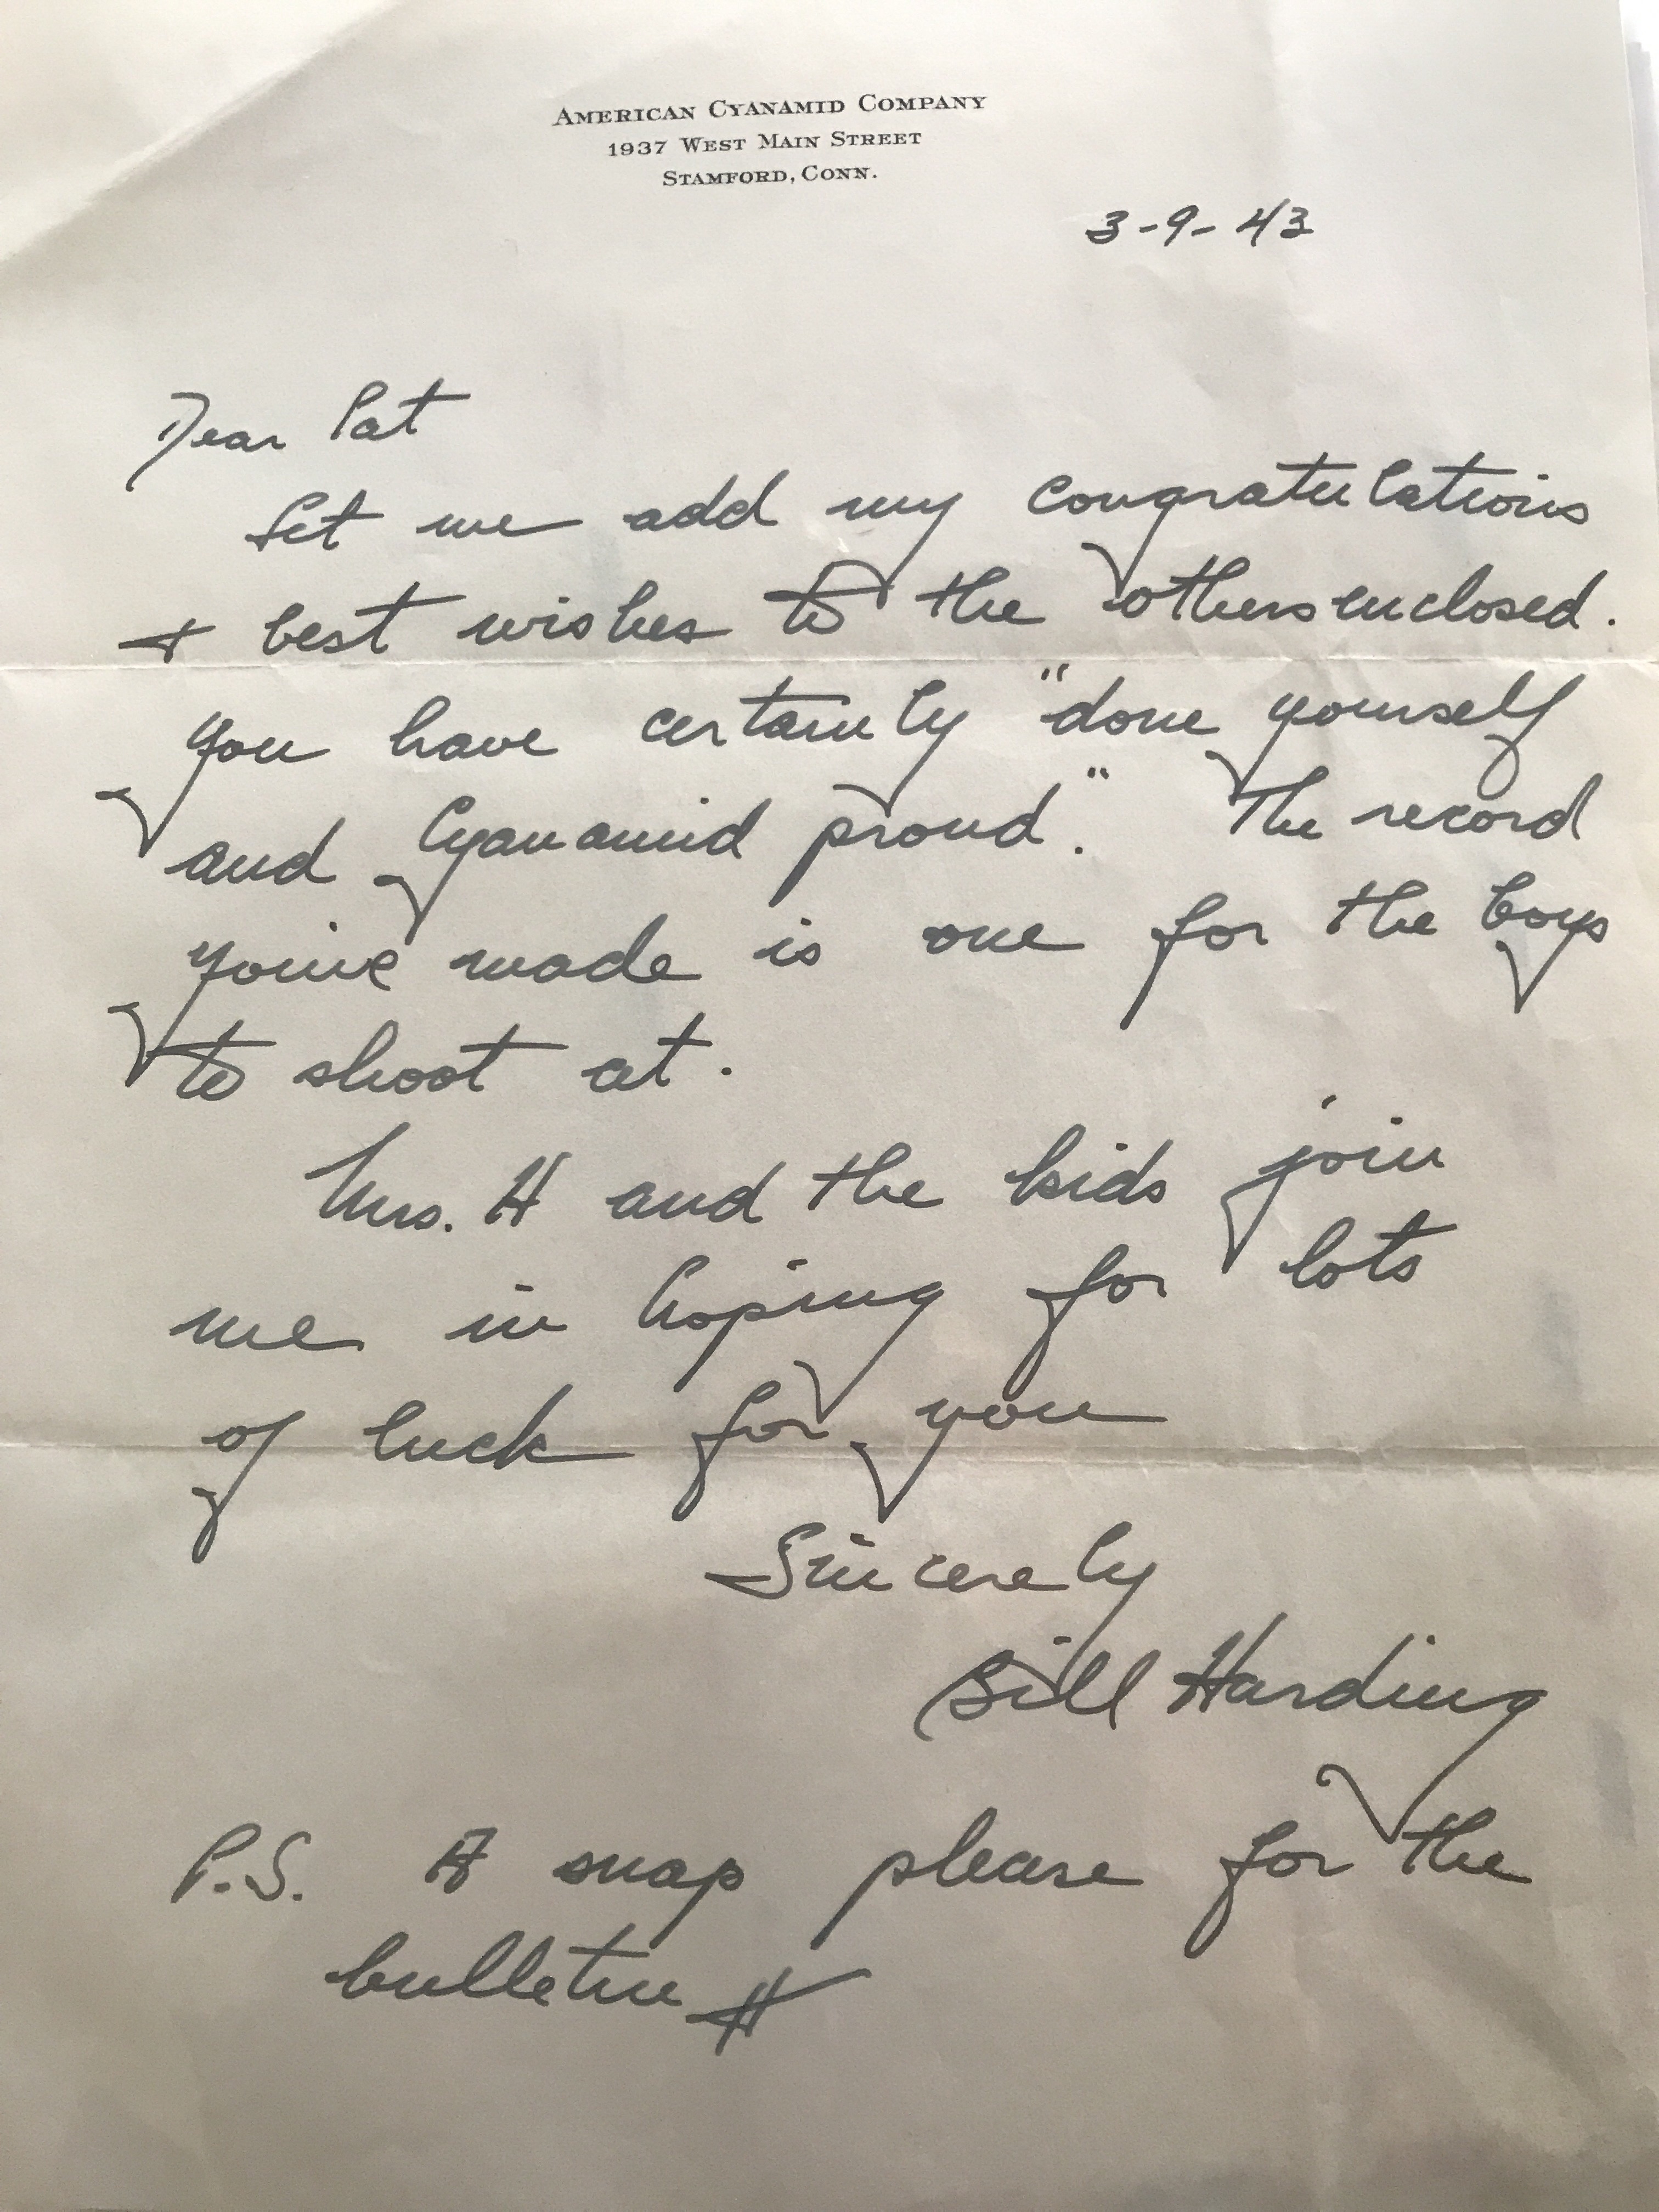 AMERICAN CYANAMID COMPANY
1937 WEST MAIN STREET
STAMFORD, CONN.
3-9-43
Dear Pat
Let me add my congratulations
+ best wishes to the others enclosed.
You have certainly "done yourself
and Cyanamid proud." The record
you've made is one for the boys
to shoot at.
Mrs. H and the kids join
me in hoping for lots
of luck for you
Sincerely
Bill Harding
P.S. A snap please for the
bulletin H